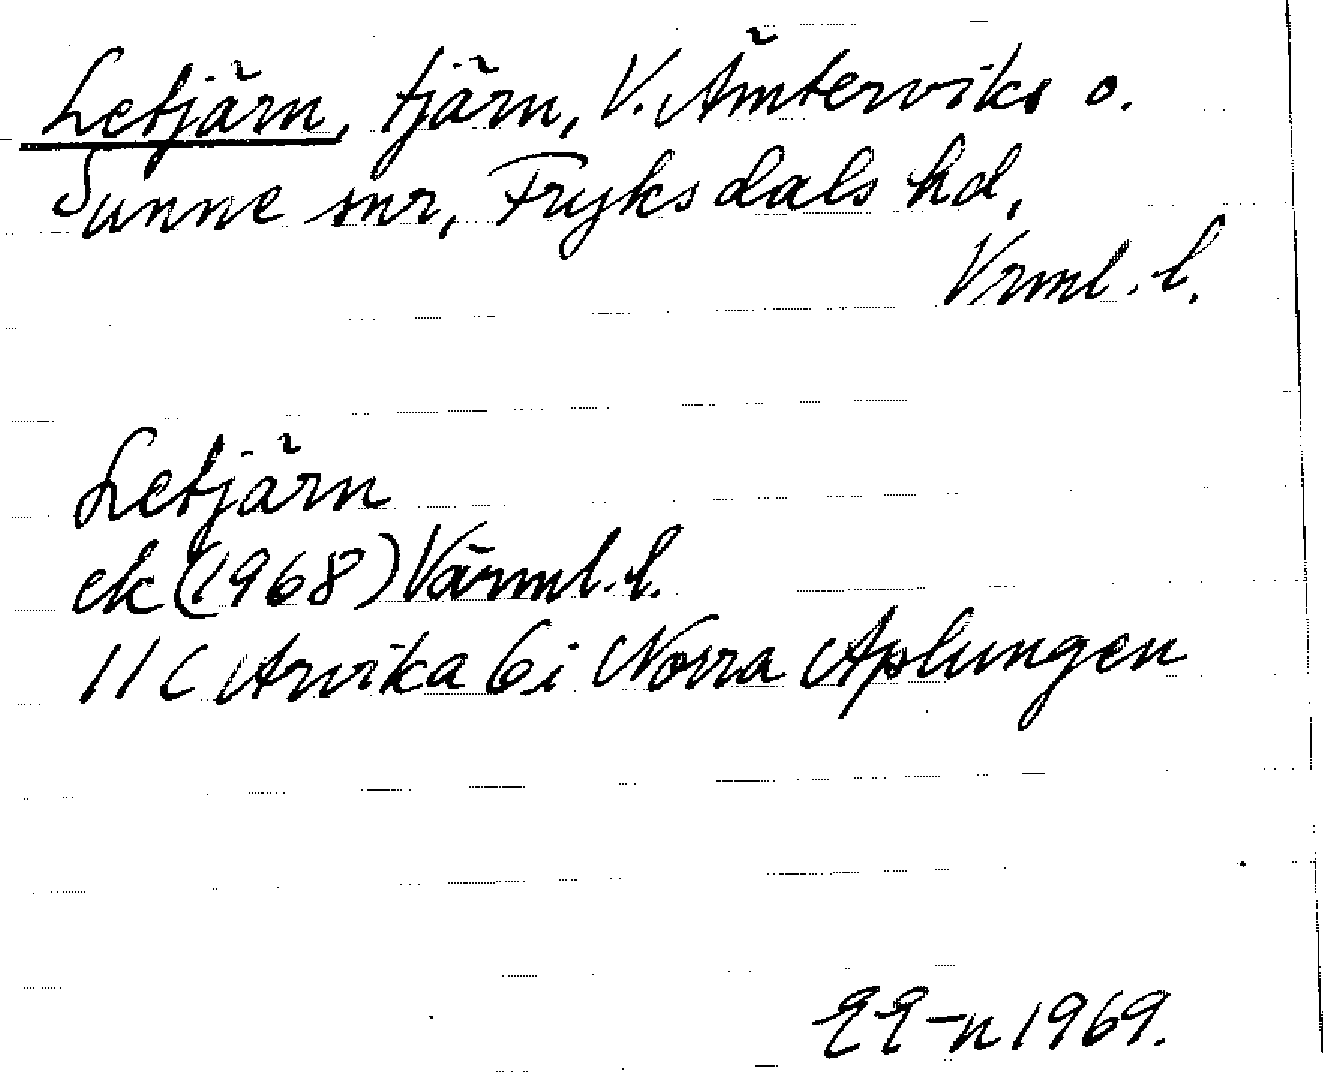 Letjärn, tjärn, V. Ämterviks o.
Sunne snr, Fryksdals hd,
Vrml. l.
Letjärn
ek (1968) Värml. l.
11 C Arvika 6 i Norra Aplungen
EE-n 1969.